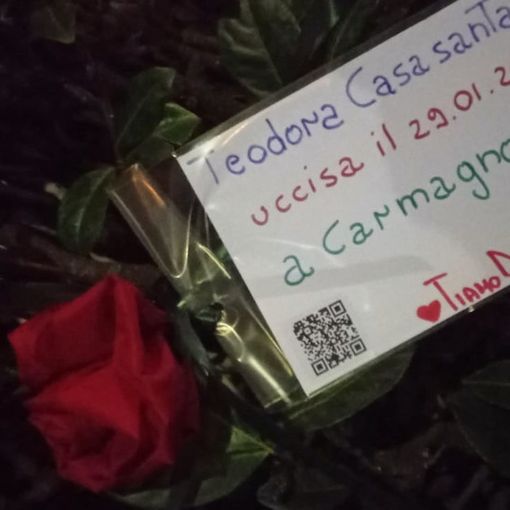 Teodora Casasanta
uccisa il 29.01.2
a Carmagno
Tiamo